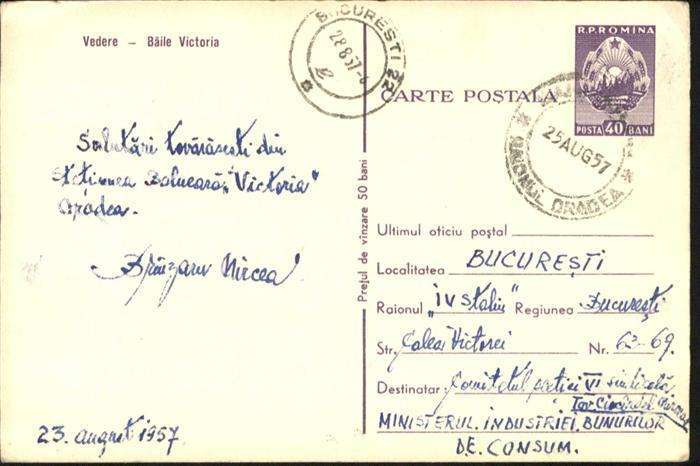 Vedere – Băile Victoria
Salutări tovărăsesti din
Stațiunea Balneară "Victoria"
Oradea.
Brînzaru Mircea
23. august 1957
Prețul de vînzare 50 bani
BUCUREȘTI 22
28.8.57
CARTE POȘTALA
R.P.ROMINA
POSTA 40 BANI
25AUG57
RAIONUL ORADEA
Ultimul oficiu poștal
Localitatea BUCUREȘTI
Raionul "IV Stalin" Regiunea București
Str. Calea Victoriei Nr. 63-69.
Destinatar: Comitetul secției VI sindicală
Tov.
MINISTERUL INDUSTRIEI BUNURILOR
DE CONSUM.